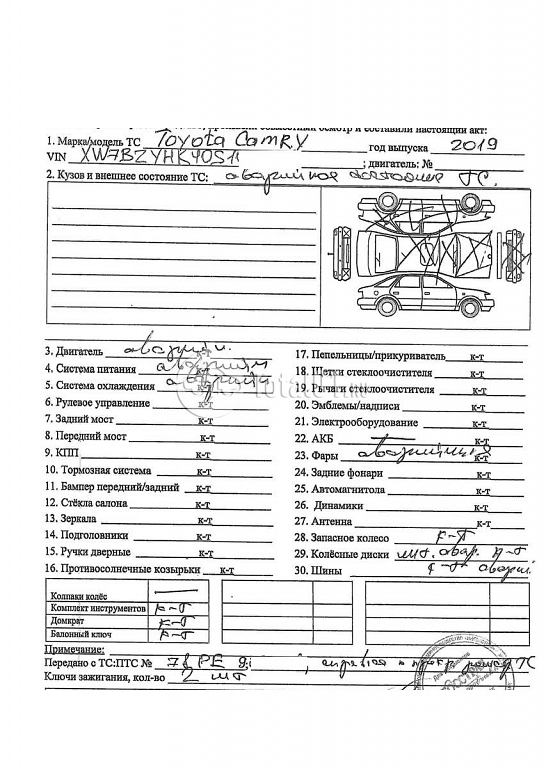 осмотр и составили настоящий акт:
1. Марка/модель ТС Toyota Camry год выпуска 2019
VIN ; двигатель: №
2. Кузов и внешнее состояние ТС: аварийное состояние ТС.
3. Двигатель аварийн.
4. Система питания
5. Система охлаждения
6. Рулевое управление к-т
7. Задний мост к-т
8. Передний мост к-т
9. КПП к-т
10. Тормозная система к-т
11. Бампер передний/задний к-т
12. Стёкла салона к-т
13. Зеркала к-т
14. Подголовники к-т
15. Ручки дверные к-т
16. Противосолнечные козырьки к-т
17. Пепельницы/прикуриватель к-т
18. Щетки стеклоочистителя к-т
19. Рычаги стеклоочистителя к-т
20. Эмблемы/надписи к-т
21. Электрооборудование к-т
22. АКБ к-т
23. Фары к-т
24. Задние фонари к-т
25. Автомагнитола к-т
26. Динамики к-т
27. Антенна к-т
28. Запасное колесо к-т
29. Колёсные диски к-т
30. Шины к-т
Колпаки колёс —
Комплект инструментов к-т
Домкрат к-т
Балонный ключ к-т
Примечание:
Передано с ТС:ПТС № 78 РЕ ТС
Ключи зажигания, кол-во 2 шт